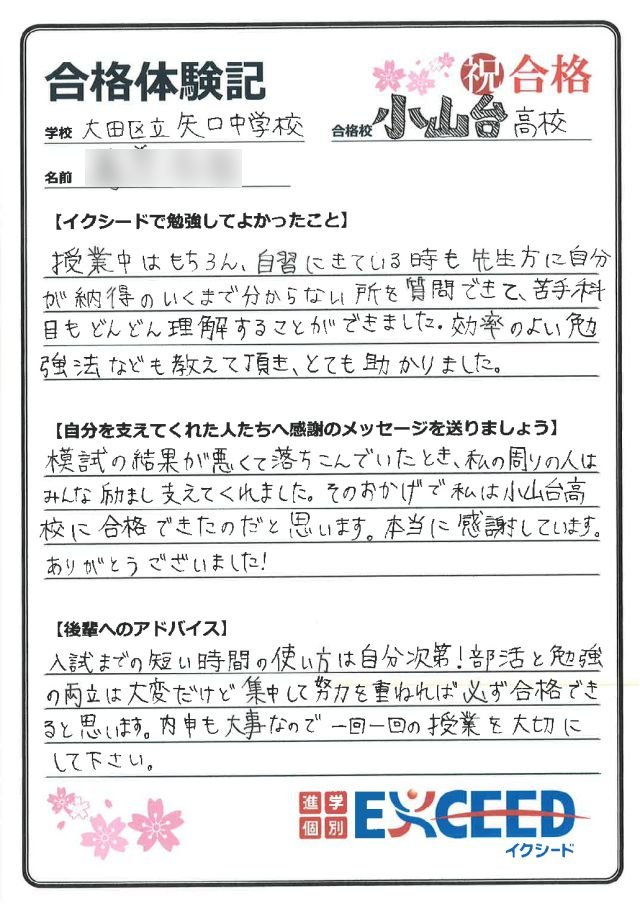 合格体験記
祝 合格
学校 大田区立 矢口中学校
合格校 小山台 高校
名前
【イクシードで勉強してよかったこと】
授業中はもちろん、自習にきている時も先生方に自分
が納得のいくまで分からない所を質問できて、苦手科
目もどんどん理解することができました。効率のよい勉
強法なども教えて頂き、とても助かりました。
【自分を支えてくれた人たちへ感謝のメッセージを送りましょう】
模試の結果が悪くて落ちこんでいたとき、私の周りの人は
みんな励まし支えてくれました。そのおかげで私は小山台高
校に合格できたのだと思います。本当に感謝しています。
ありがとうございました!
【後輩へのアドバイス】
入試までの短い時間の使い方は自分次第!部活と勉強
の両立は大変だけど集中して努力を重ねれば必ず合格でき
ると思います。内申も大事なので一回一回の授業を大切に
して下さい。
進学
個別
EXCEED
イクシード